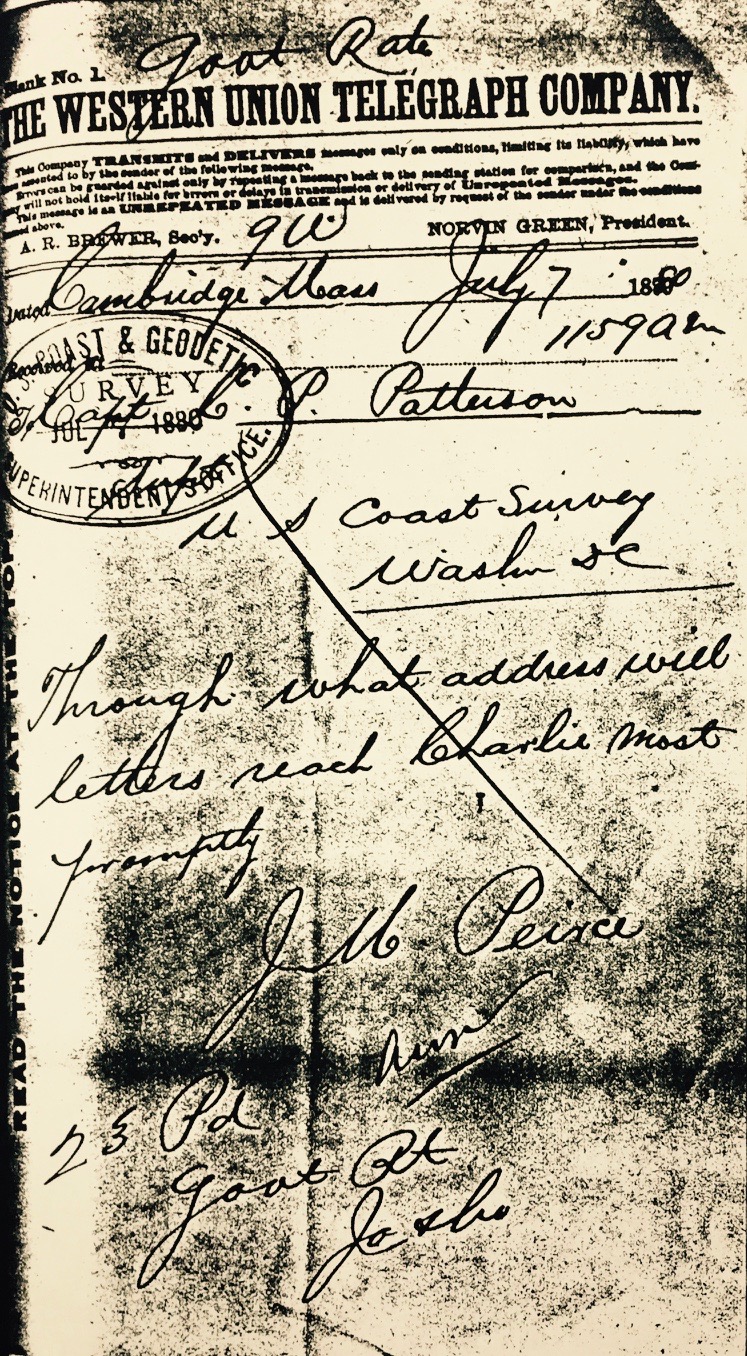 Govt Rate
Blank No. 1.
THE WESTERN UNION TELEGRAPH COMPANY.
This Company TRANSMITS and DELIVERS messages only on conditions, limiting its liability, which have
been assented to by the sender of the following message.
Errors can be guarded against only by repeating a message back to the sending station for comparison, and the Com-
pany will not hold itself liable for errors or delays in transmission or delivery of Unrepeated Messages.
This message is an UNREPEATED MESSAGE and is delivered by request of the sender under the conditions
named above.
A. R. BREWER, Sec'y. NORVIN GREEN, President.
Dated Cambridge Mass July 7 1880
1159 am
Received at
U. S. COAST & GEODETIC
SURVEY
JUL 7 1880
SUPERINTENDENT'S OFFICE.
To Capt C. P. Patterson
U S Coast Survey
Washn DC
Through what address will
letters reach Charlie most
promptly
J M Peirce
23 Pd
Govt Rt
READ THE NOTICE AT THE TOP.